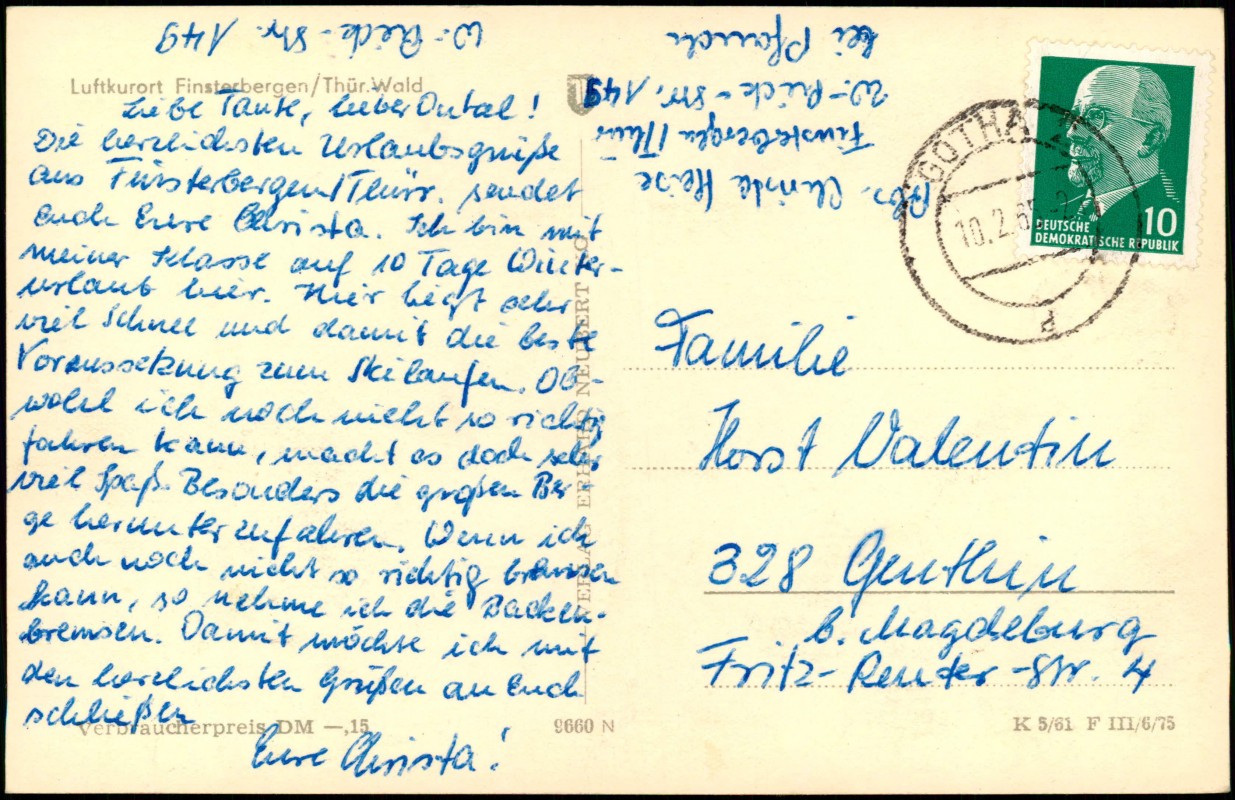 W.-Pieck-Str. 149
Luftkurort Finsterbergen/Thür. Wald
Liebe Tante, lieber Onkal!
Die herzlichsten Urlaubsgrüße
aus Finsterbergen/Thür. sendet
Euch Eure Christa. Ich bin mit
meiner Klasse auf 10 Tage Winter-
urlaub hier. Hier liegt sehr
viel Schnee und damit die beste
Voraussetzung zum Skilaufen. Ob-
wohl ich noch nicht so richtig
fahren kann, macht es doch sehr
viel Spaß. Besonders die großen Ber-
ge herunterzufahren. Wenn ich
auch noch nicht so richtig bremsen
kann, so nehme ich die Backen-
bremsen. Damit möchte ich mit
den herzlichsten Grüßen an Euch
schließen
Eure Christa!
Verbraucherpreis DM —,15
9660 N
VERLAG ERHARD NEUBERT
Abs. Christa Heise
Finsterbergen/Thür
W.-Pieck-Str. 149
bei
GOTHA 2
10.2.65
P
10
DEUTSCHE
DEMOKRATISCHE REPUBLIK
Familie
Horst Valentin
328 Genthin
b. Magdeburg
Fritz-Reuter-Str. 4
K 5/61 F III/6/75